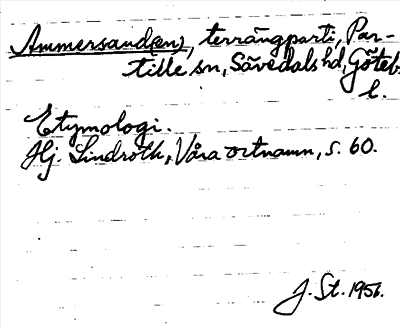 Ammersand(en), terrängparti, Par-
tille sn, Sävedals hd, Göteb.
l.
Etymologi.
Hj. Lindroth, Våra ortnamn, s. 60.
J. St. 1956.